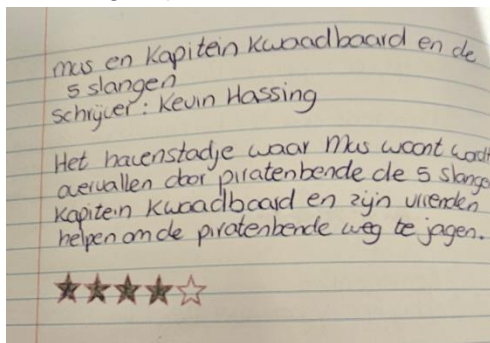 mus en Kapitein Kwaadbaard en de
5 slangen
schrijver: Kevin Hassing
Het havenstadje waar Mus woont wordt
overvallen door piratenbende de 5 slange
Kapitein Kwaadbaard en zijn vrienden
helpen om de piratenbende weg te jagen.